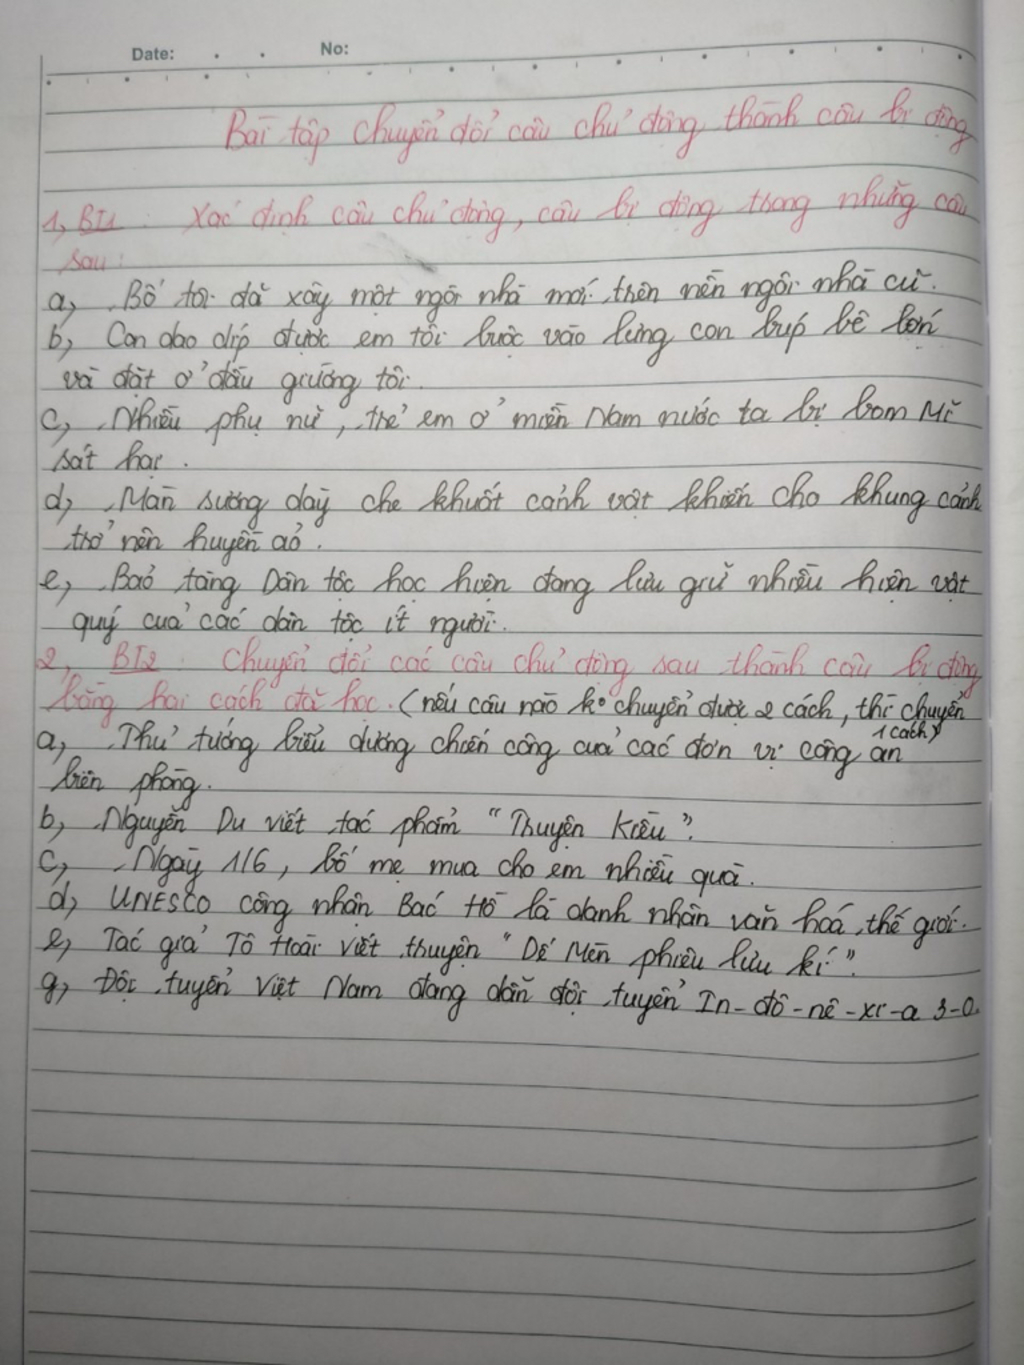 Date: . . No:
Bài tập chuyển đổi câu chủ động thành câu bị động
1, BT1 : Xác định câu chủ động, câu bị động trong những câu
sau:
a, Bố tôi đã xây một ngôi nhà mới trên nền ngôi nhà cũ.
b, Con dao díp được em tôi buộc vào lưng con búp bê lớn
và đặt ở đầu giường tôi.
c, Nhiều phụ nữ, trẻ em ở miền Nam nước ta bị bom Mĩ
sát hại.
d, Màn sương dày che khuất cảnh vật khiến cho khung cảnh
trở nên huyền ảo.
e, Bảo tàng Dân tộc học hiện đang lưu giữ nhiều hiện vật
quý của các dân tộc ít người.
2, BT2 : Chuyển đổi các câu chủ động sau thành câu bị động
bằng hai cách đã học. (nếu câu nào ko chuyển được 2 cách, thì chuyển
1 cách)
a, Thủ tướng biểu dương chiến công của các đơn vị công an
biên phòng.
b, Nguyễn Du viết tác phẩm "Truyện Kiều".
c, Ngày 1/6, bố mẹ mua cho em nhiều quà.
d, UNESCO công nhận Bác Hồ là danh nhân văn hoá thế giới.
e, Tác giả Tô Hoài viết truyện "Dế Mèn phiêu lưu kí".
g, Đội tuyển Việt Nam đang dẫn đội tuyển In-đô-nê-xi-a 3-0.